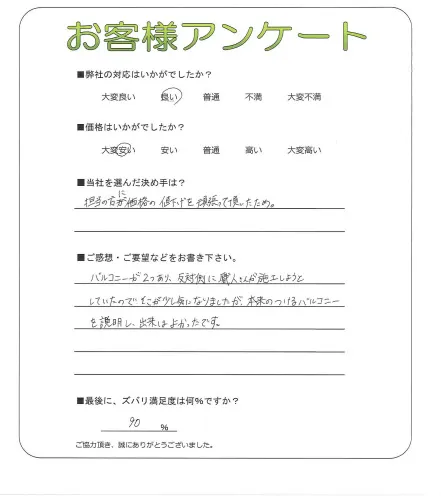 お客様アンケート
■弊社の対応はいかがでしたか？
大変良い 良い 普通 不満 大変不満
■価格はいかがでしたか？
大変安い 安い 普通 高い 大変高い
■当社を選んだ決め手は？
担当の方に価格の値下げを頑張って頂いたため。
■ご感想・ご要望などをお書き下さい。
バルコニーが2つあり、反対側に職人さんが施工しようと
していたのでそこが少し気になりましたが、本来のつけるバルコニー
を説明し、出来はよかったです。
■最後に、ズバリ満足度は何％ですか？
90 ％
ご協力頂き、誠にありがとうございました。